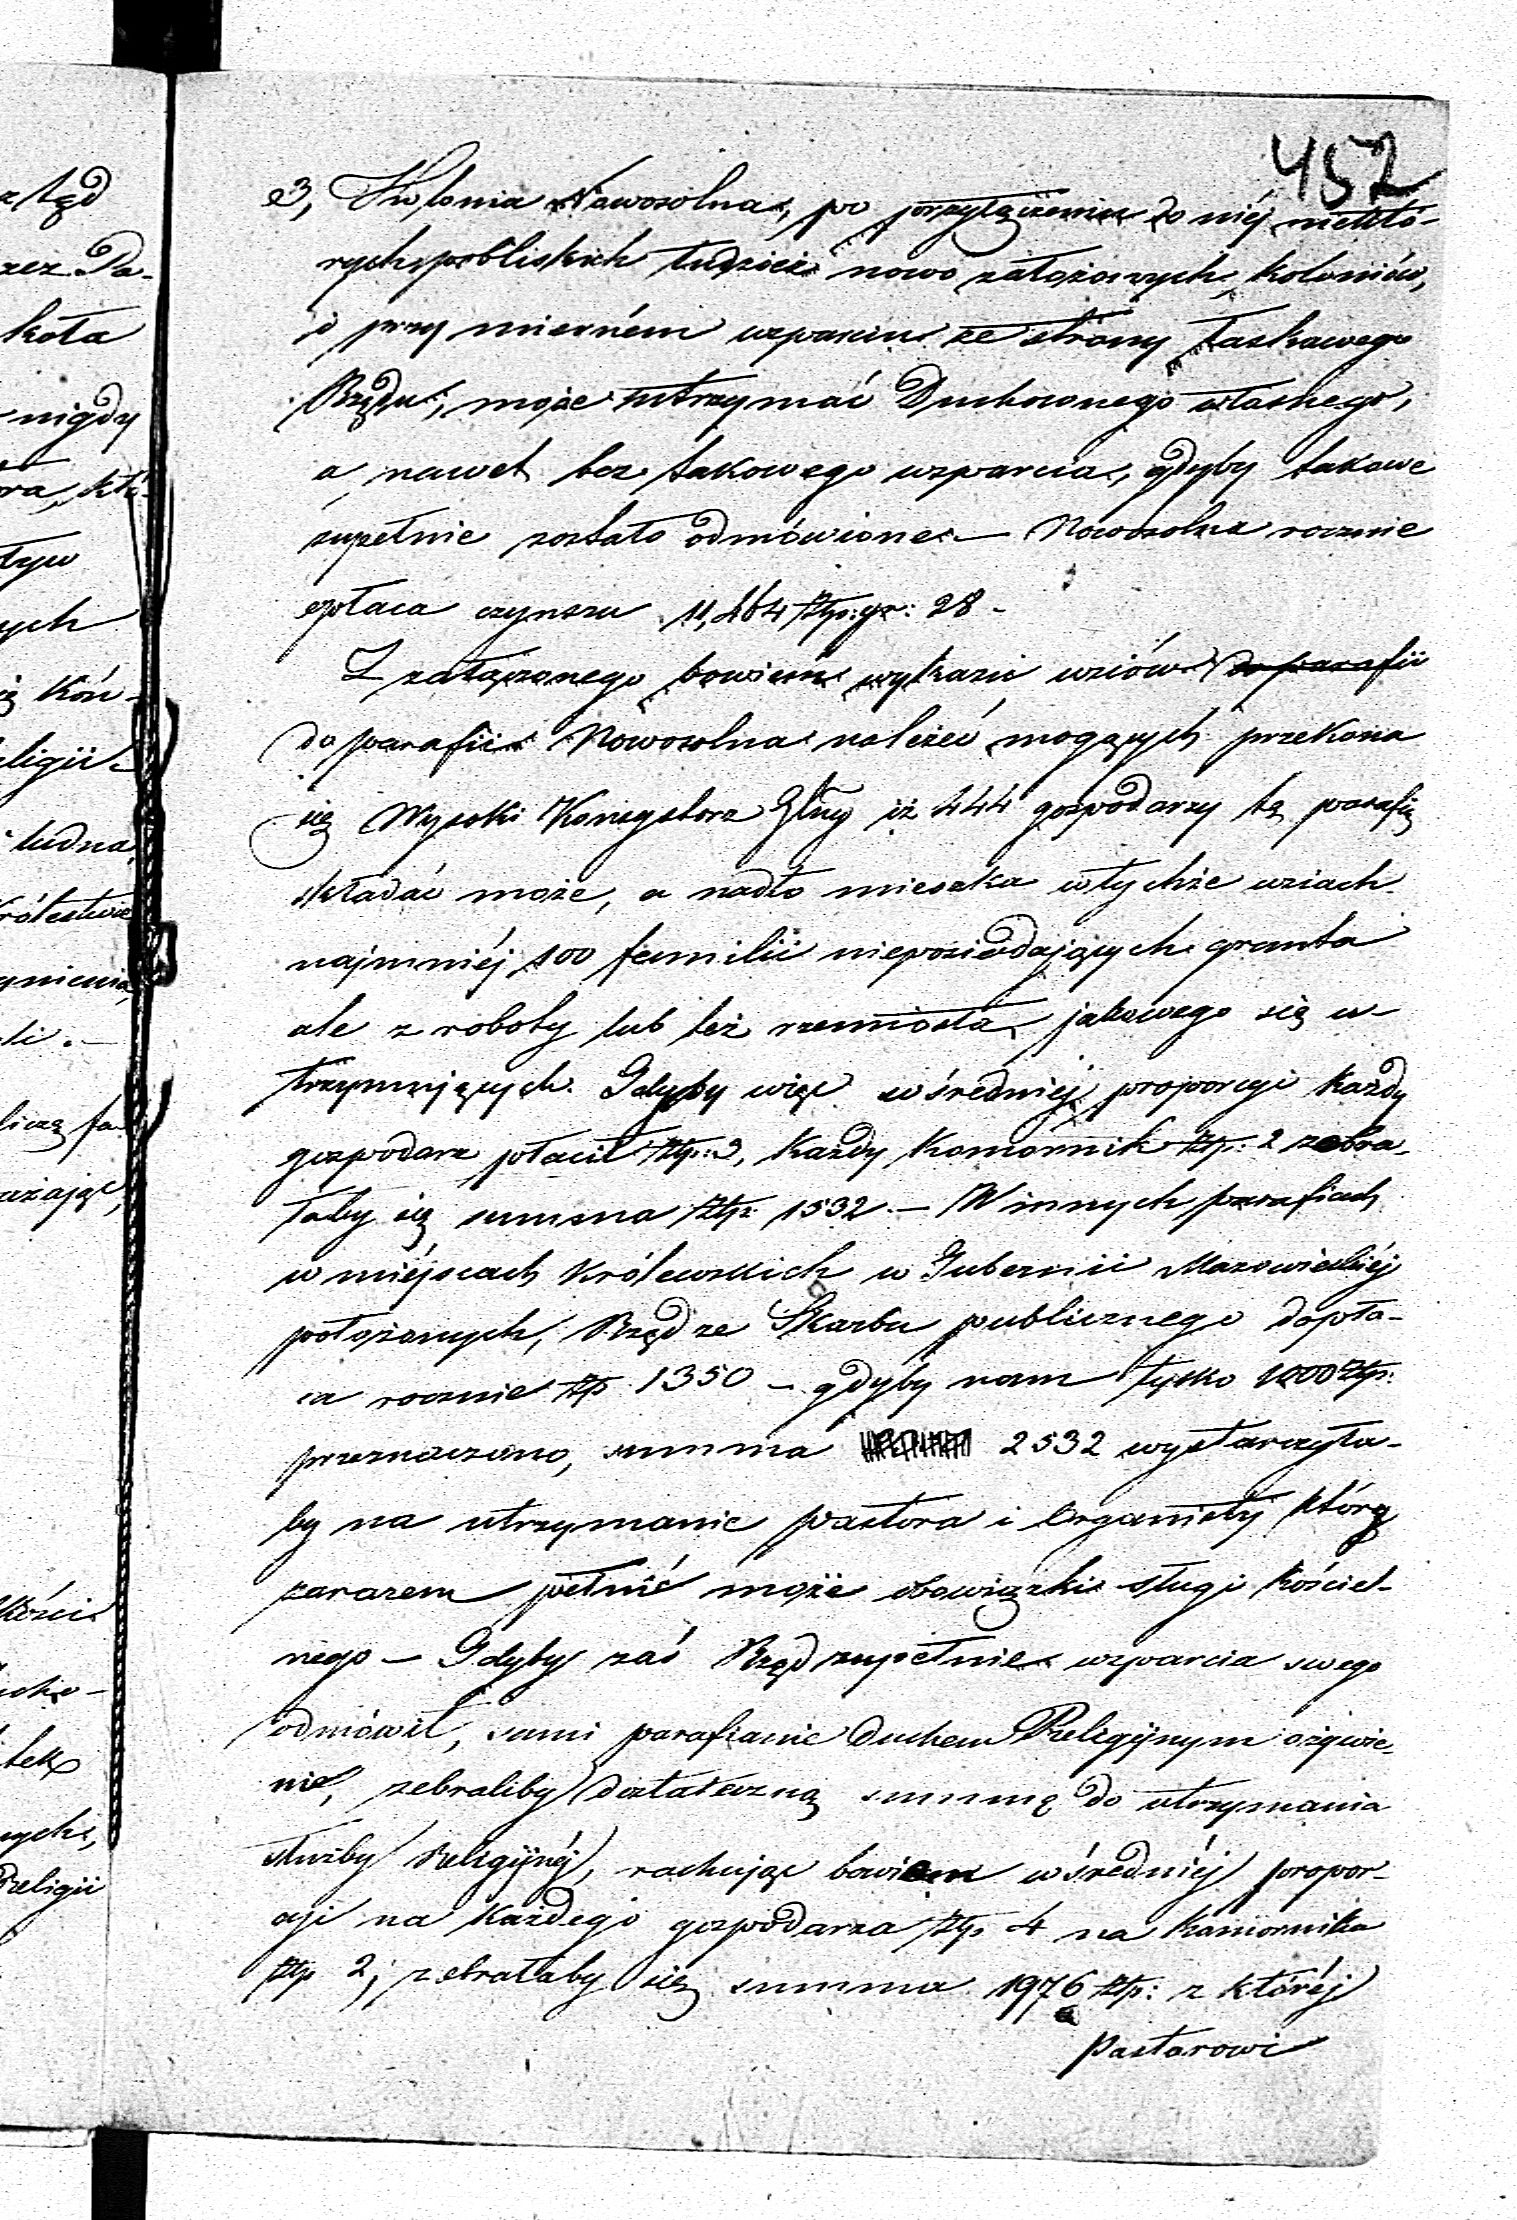 452
3, Kolonia Nowosolna, po przyłączeniu do niéj niektó-
rych pobliskich tudzież nowo założonych koloniów,
i przy mierném wsparciu ze strony łaskawego
Rządu, może utrzymać Duchownego własnego,
a nawet bez takowego wsparcia, gdyby takowe
zupełnie zostało odmówione. — Nowosolna rocznie
opłaca czynszu 11,264 Złp: gr: 28 -
Z załączonego bowiem wykazu wsiów do parafii
do parafii Nowosolna należeć mogących przekona
się Wysoki Konsystorz Glny iż 444 gospodarzy tę parafię
składać może, a nadto mieszka w tychże wsiach
najmniéj 100 familii nieposiadających grunta
ale z roboty lub też rzemiosła jakowego się u-
trzymujących. Gdyby więc w średniej proporcyi każdy
gospodarz płacił Złp: 3, każdy Komornik Złp: 2 zebra-
łaby się summa Złp: 1532. — W innych parafiach
w miéjscach Królewskich w Gubernii Mazowieckiéj
położonych, Rząd ze Skarbu publicznego dopła-
ca rocznie Złp 1350 — gdyby nam tylko 1000 Złp:
przeznaczono, summa 2532 wystarczyła-
by na utrzymanie pastora i Organisty który
zarazem pełnić może obowiązki sługi kościel-
nego — Gdyby zaś Rząd zupełnie wsparcia swego
odmówił, sami parafianie duchem Religijnym ożywie-
nie, zebraliby dostateczną summę do utrzymania
służby Religijnéj, rachując bowiem w średniéj propor-
cyi na każdego gospodarza Złp 4 na komornika
Złp 2; zebrałaby się summa 1976 Złp: z któréj
Pastorowi